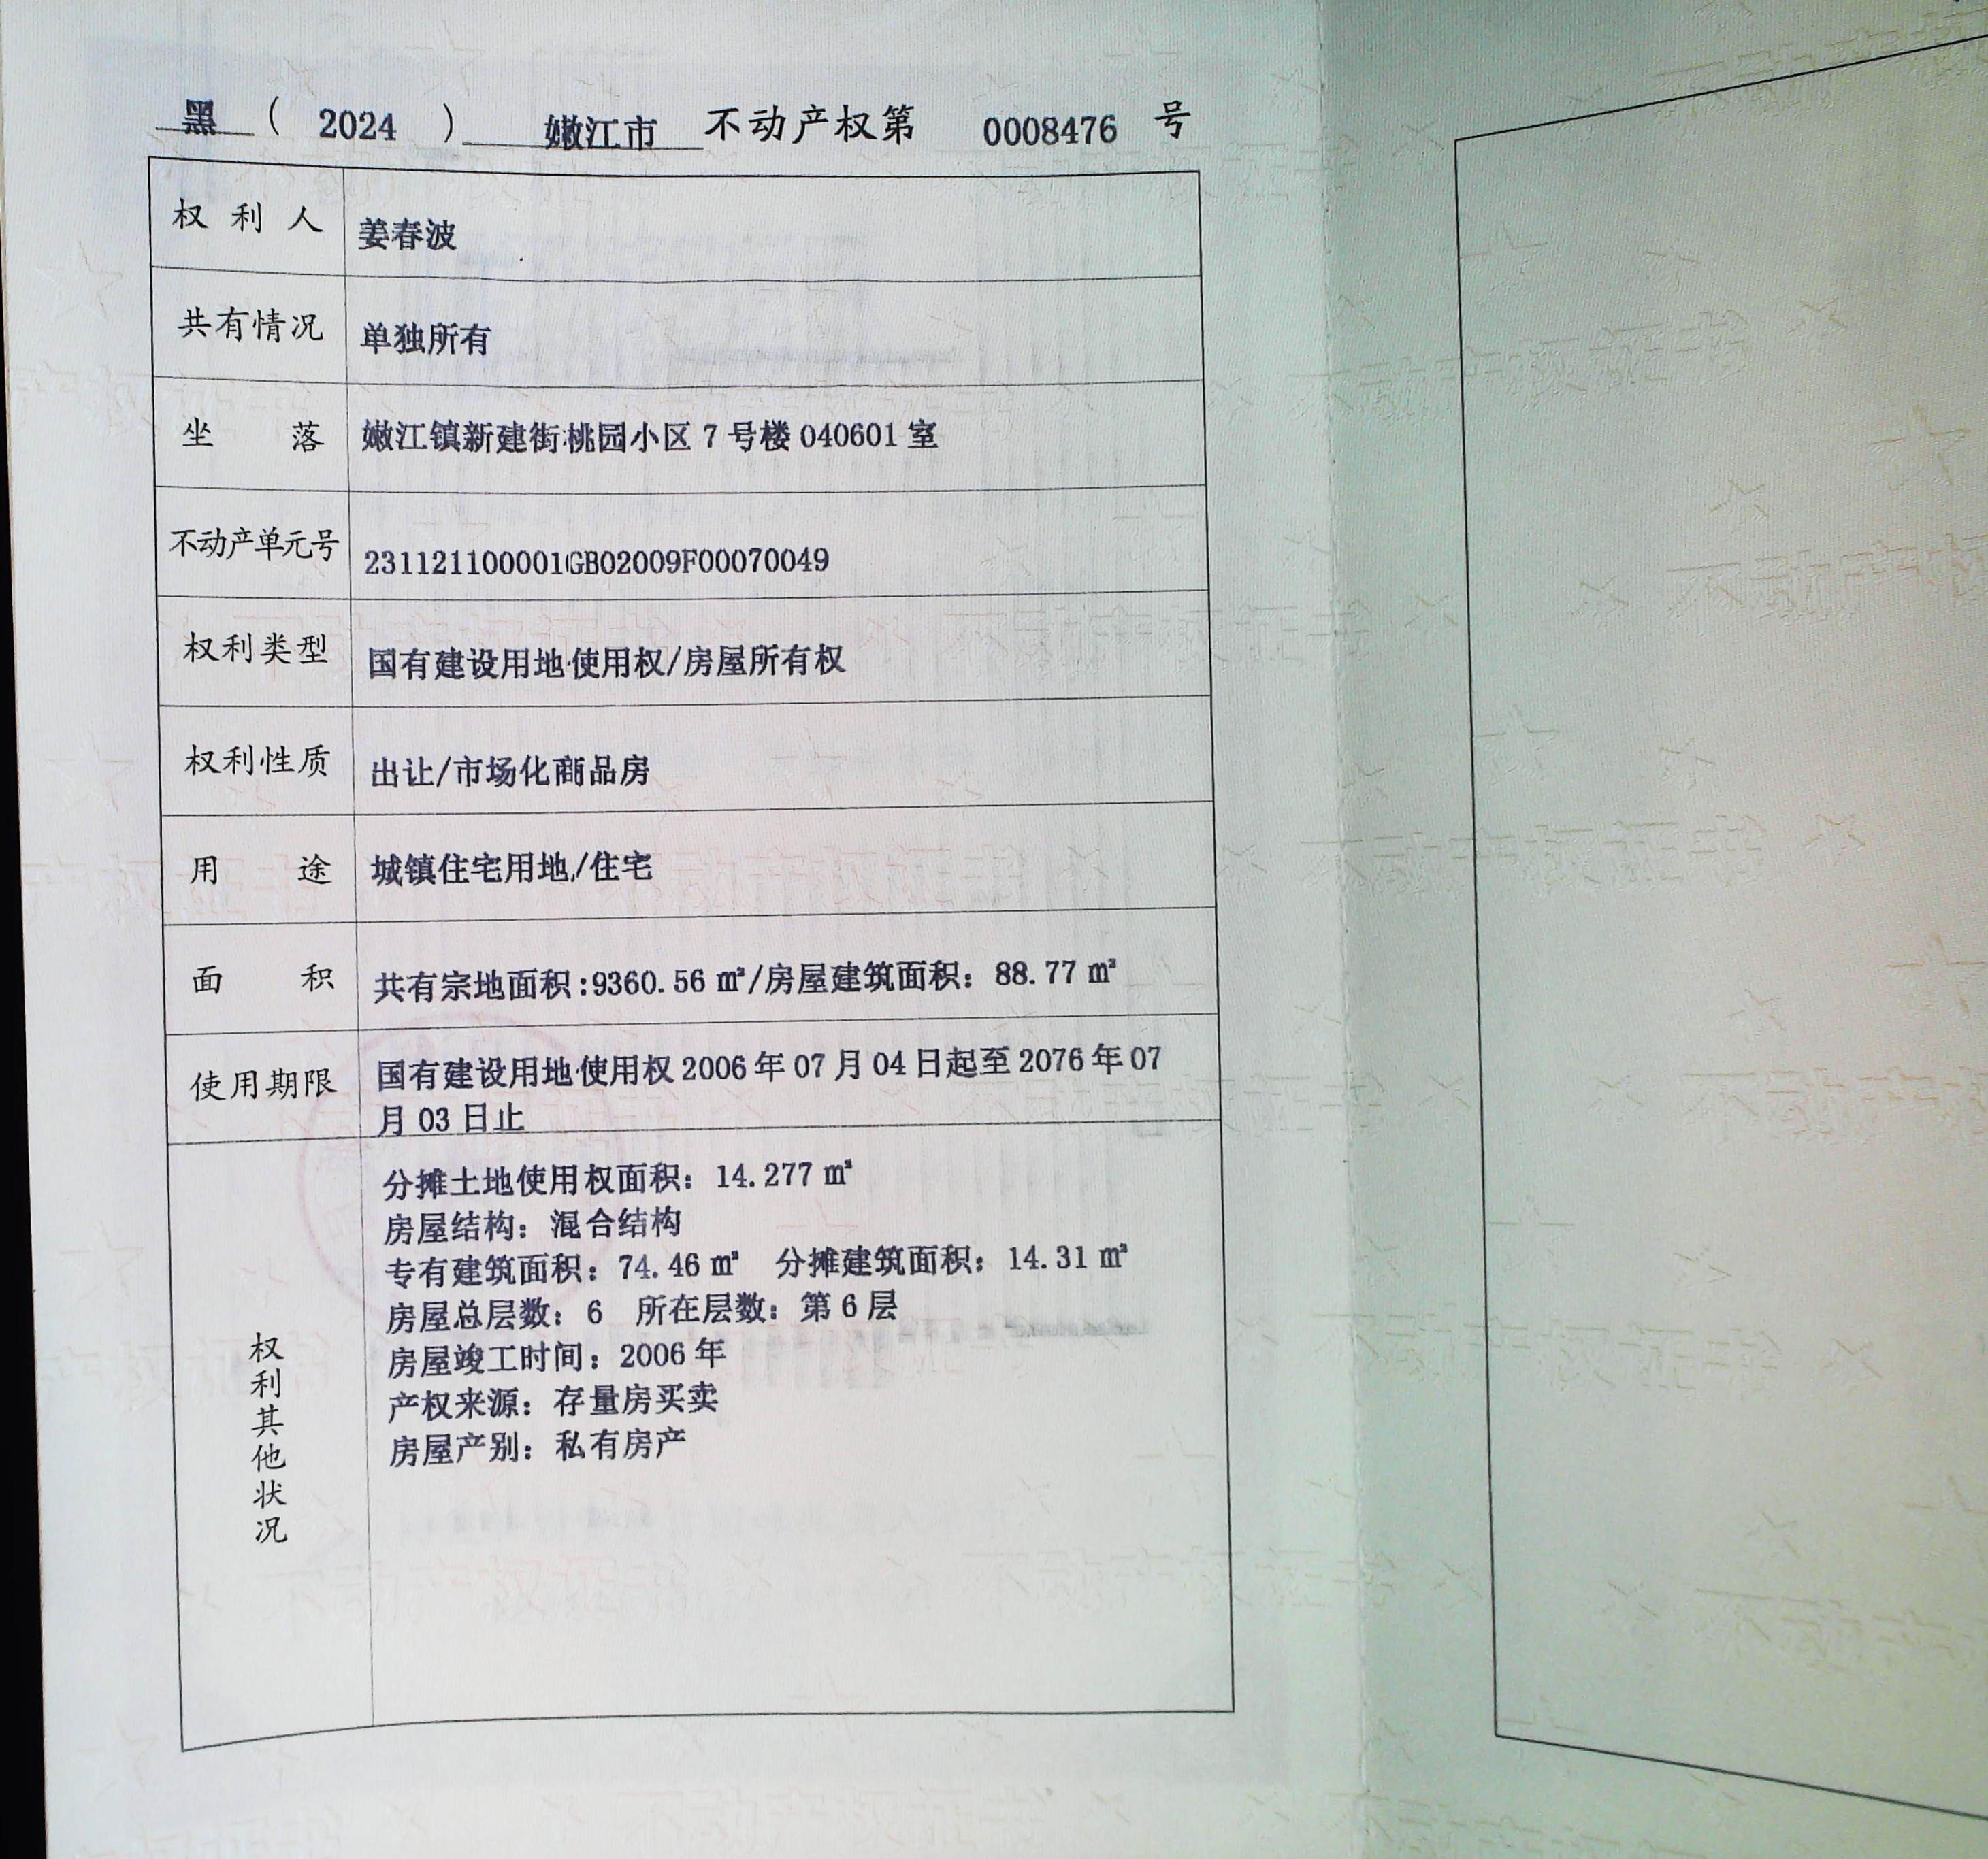 黑 ( 2024 ) 嫩江市 不动产权第 0008476 号
权利人 姜春波
共有情况 单独所有
坐落 嫩江镇新建街桃园小区 7 号楼 040601 室
不动产单元号 231121100001GB02009F00070049
权利类型 国有建设用地使用权/房屋所有权
权利性质 出让/市场化商品房
用途 城镇住宅用地/住宅
面积 共有宗地面积:9360.56 ㎡/房屋建筑面积：88.77 ㎡
使用期限 国有建设用地使用权 2006 年 07 月 04 日起至 2076 年 07
月 03 日止
权利其他状况
分摊土地使用权面积：14.277 ㎡
房屋结构：混合结构
专有建筑面积：74.46 ㎡ 分摊建筑面积：14.31 ㎡
房屋总层数：6 所在层数：第 6 层
房屋竣工时间：2006 年
产权来源：存量房买卖
房屋产别：私有房产